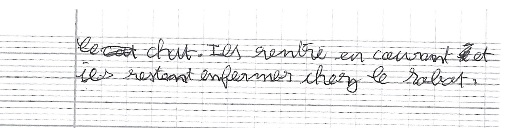 le chat. Ils rentre en courant et
iles restant enfermer cherz le robot.